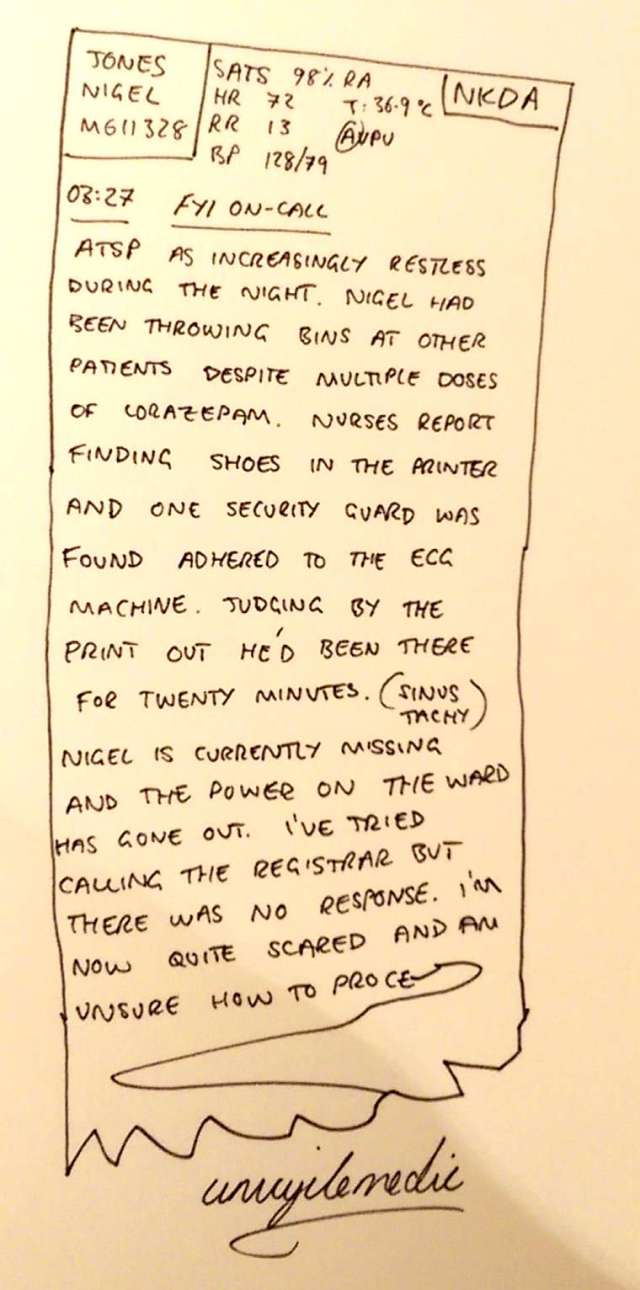 JONES
NIGEL
M611328
SATS 98% RA
HR 72 T: 36.9°C
RR 13 AVPU
BP 128/79
NKDA
03:27 FY1 ON-CALL
ATSP AS INCREASINGLY RESTLESS
DURING THE NIGHT. NIGEL HAD
BEEN THROWING BINS AT OTHER
PATIENTS DESPITE MULTIPLE DOSES
OF LORAZEPAM. NURSES REPORT
FINDING SHOES IN THE PRINTER
AND ONE SECURITY GUARD WAS
FOUND ADHERED TO THE ECG
MACHINE. JUDGING BY THE
PRINT OUT HE'D BEEN THERE
FOR TWENTY MINUTES. (SINUS
TACHY)
NIGEL IS CURRENTLY MISSING
AND THE POWER ON THE WARD
HAS GONE OUT. I'VE TRIED
CALLING THE REGISTRAR BUT
THERE WAS NO RESPONSE. I'M
NOW QUITE SCARED AND AM
UNSURE HOW TO PROCE